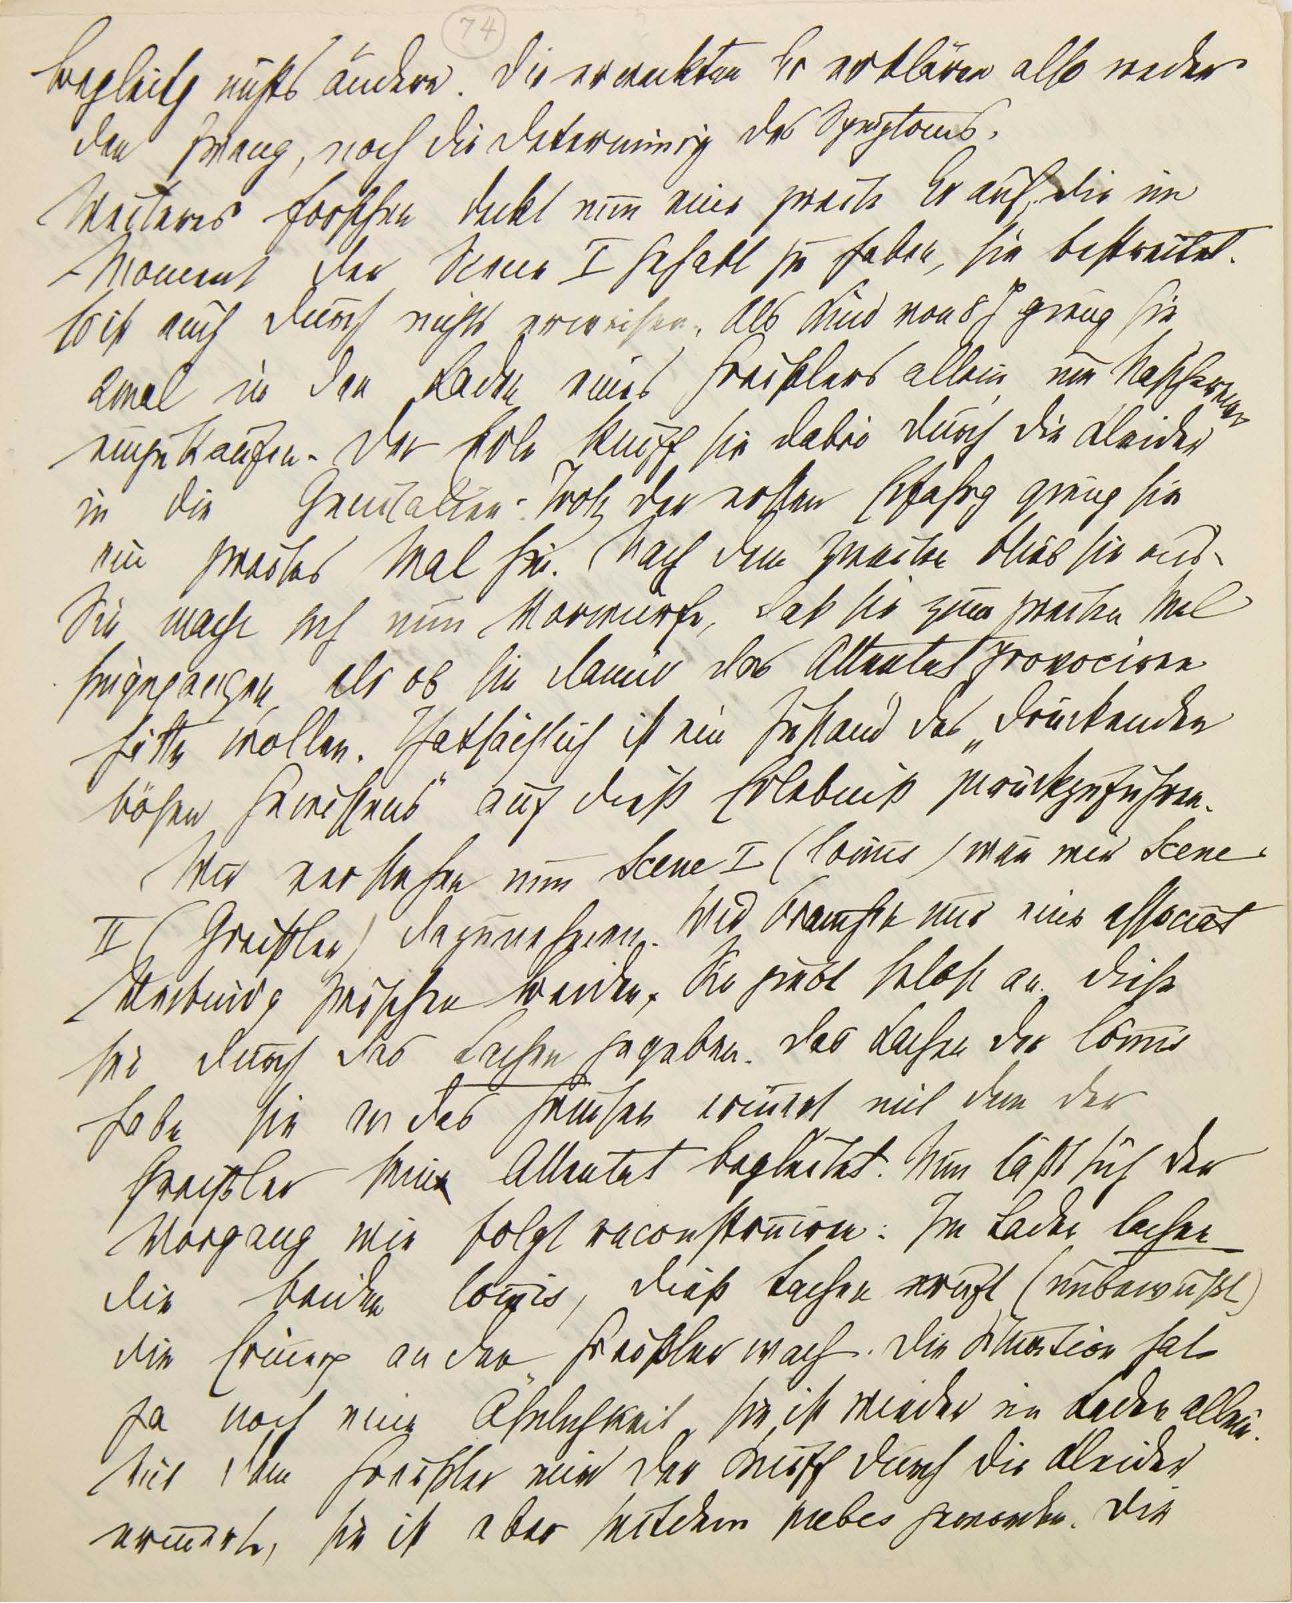 74
Begleitg nichts ändere. Die erweckten Er erklären also weder
den Zwang, noch die Determinirg des Symptoms.
Weiteres Forschen deckt nun eine zweite Er auf, die im
Moment der Scene I gehabt zu haben, sie bestreitet.
Es ist auch durch nichts erweisen. Als Kind von 8 J gieng sie
2mal in den Laden eines Greißlers allein, um Näschereien
einzukaufen. Der Edle kniff sie dabei durch die Kleider
in die Genitalien. Trotz der ersten Erfahrg gieng sie
ein zweites Mal hin. Nach dem zweiten blieb sie aus.
Sie macht sich nun Vorwürfe, daß sie zum zweiten Mal
hingegangen, als ob sie damit das Attentat provociren
hätte wollen. Thatsächlich ist ein Zustand des „drückenden
bösen Gewissens“ auf dieß Erlebniß zurückzuführen.
Wir verstehen nun Scene I (Comis) wenn wir Scene
II (Greißler) dazunehmen. Wir brauchen nur eine associat
Verbindg zwischen beiden. Sie giebt selbst an, diese
sei durch das Lachen gegeben. Das Lachen der Comis
habe sie an das Grinsen erinnert mit dem der
Greißler sein Attentat begleitet. Nun läßt sich der
Vorgang wie folgt reconstruiren: Im Laden lachen
die beiden Comis, dieß Lachen ruft (unbewußt)
die Erinerg an den Greißler wach. Die Situation hat
ja noch eine Ähnlichkeit, sie ist wieder im Laden allein.
Mit dem Greißler wird der Kniff durch die Kleider
erinnert, sie ist aber seitdem pubes geworden. Die